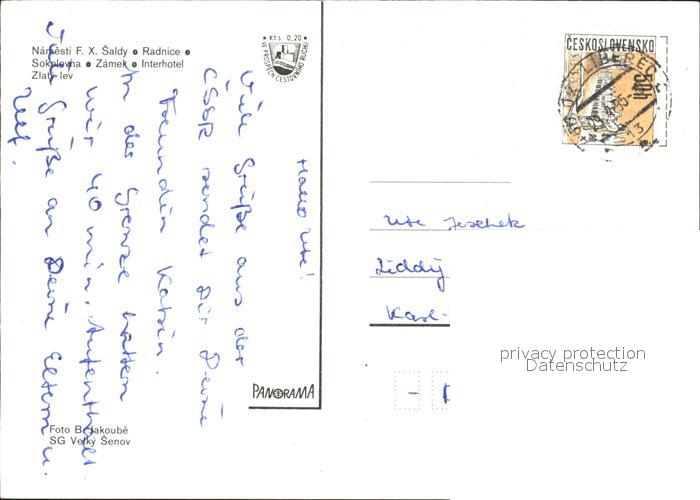 Náměstí F. X. Šaldy • Radnice •
Sokolovna • Zámek • Interhotel
Zlatý lev
Kčs 0,20
VE PROSPĚCH CESTOVNÍHO RUCHU
ČESKOSLOVENSKO
50h
LIBEREC
Hallo Ute!
Viele Grüße aus der
ČSSR sendet Dir Deine
Freundin Katrin.
An der Grenze hatten
wir 40 min. Aufenthalt.
Viele Grüße an Deine Eltern u.
Ulf.
Ute Jeschek
Karl-
PANORAMA
Foto B. Jakoubě
SG Velký Šenov
privacy protection
Datenschutz